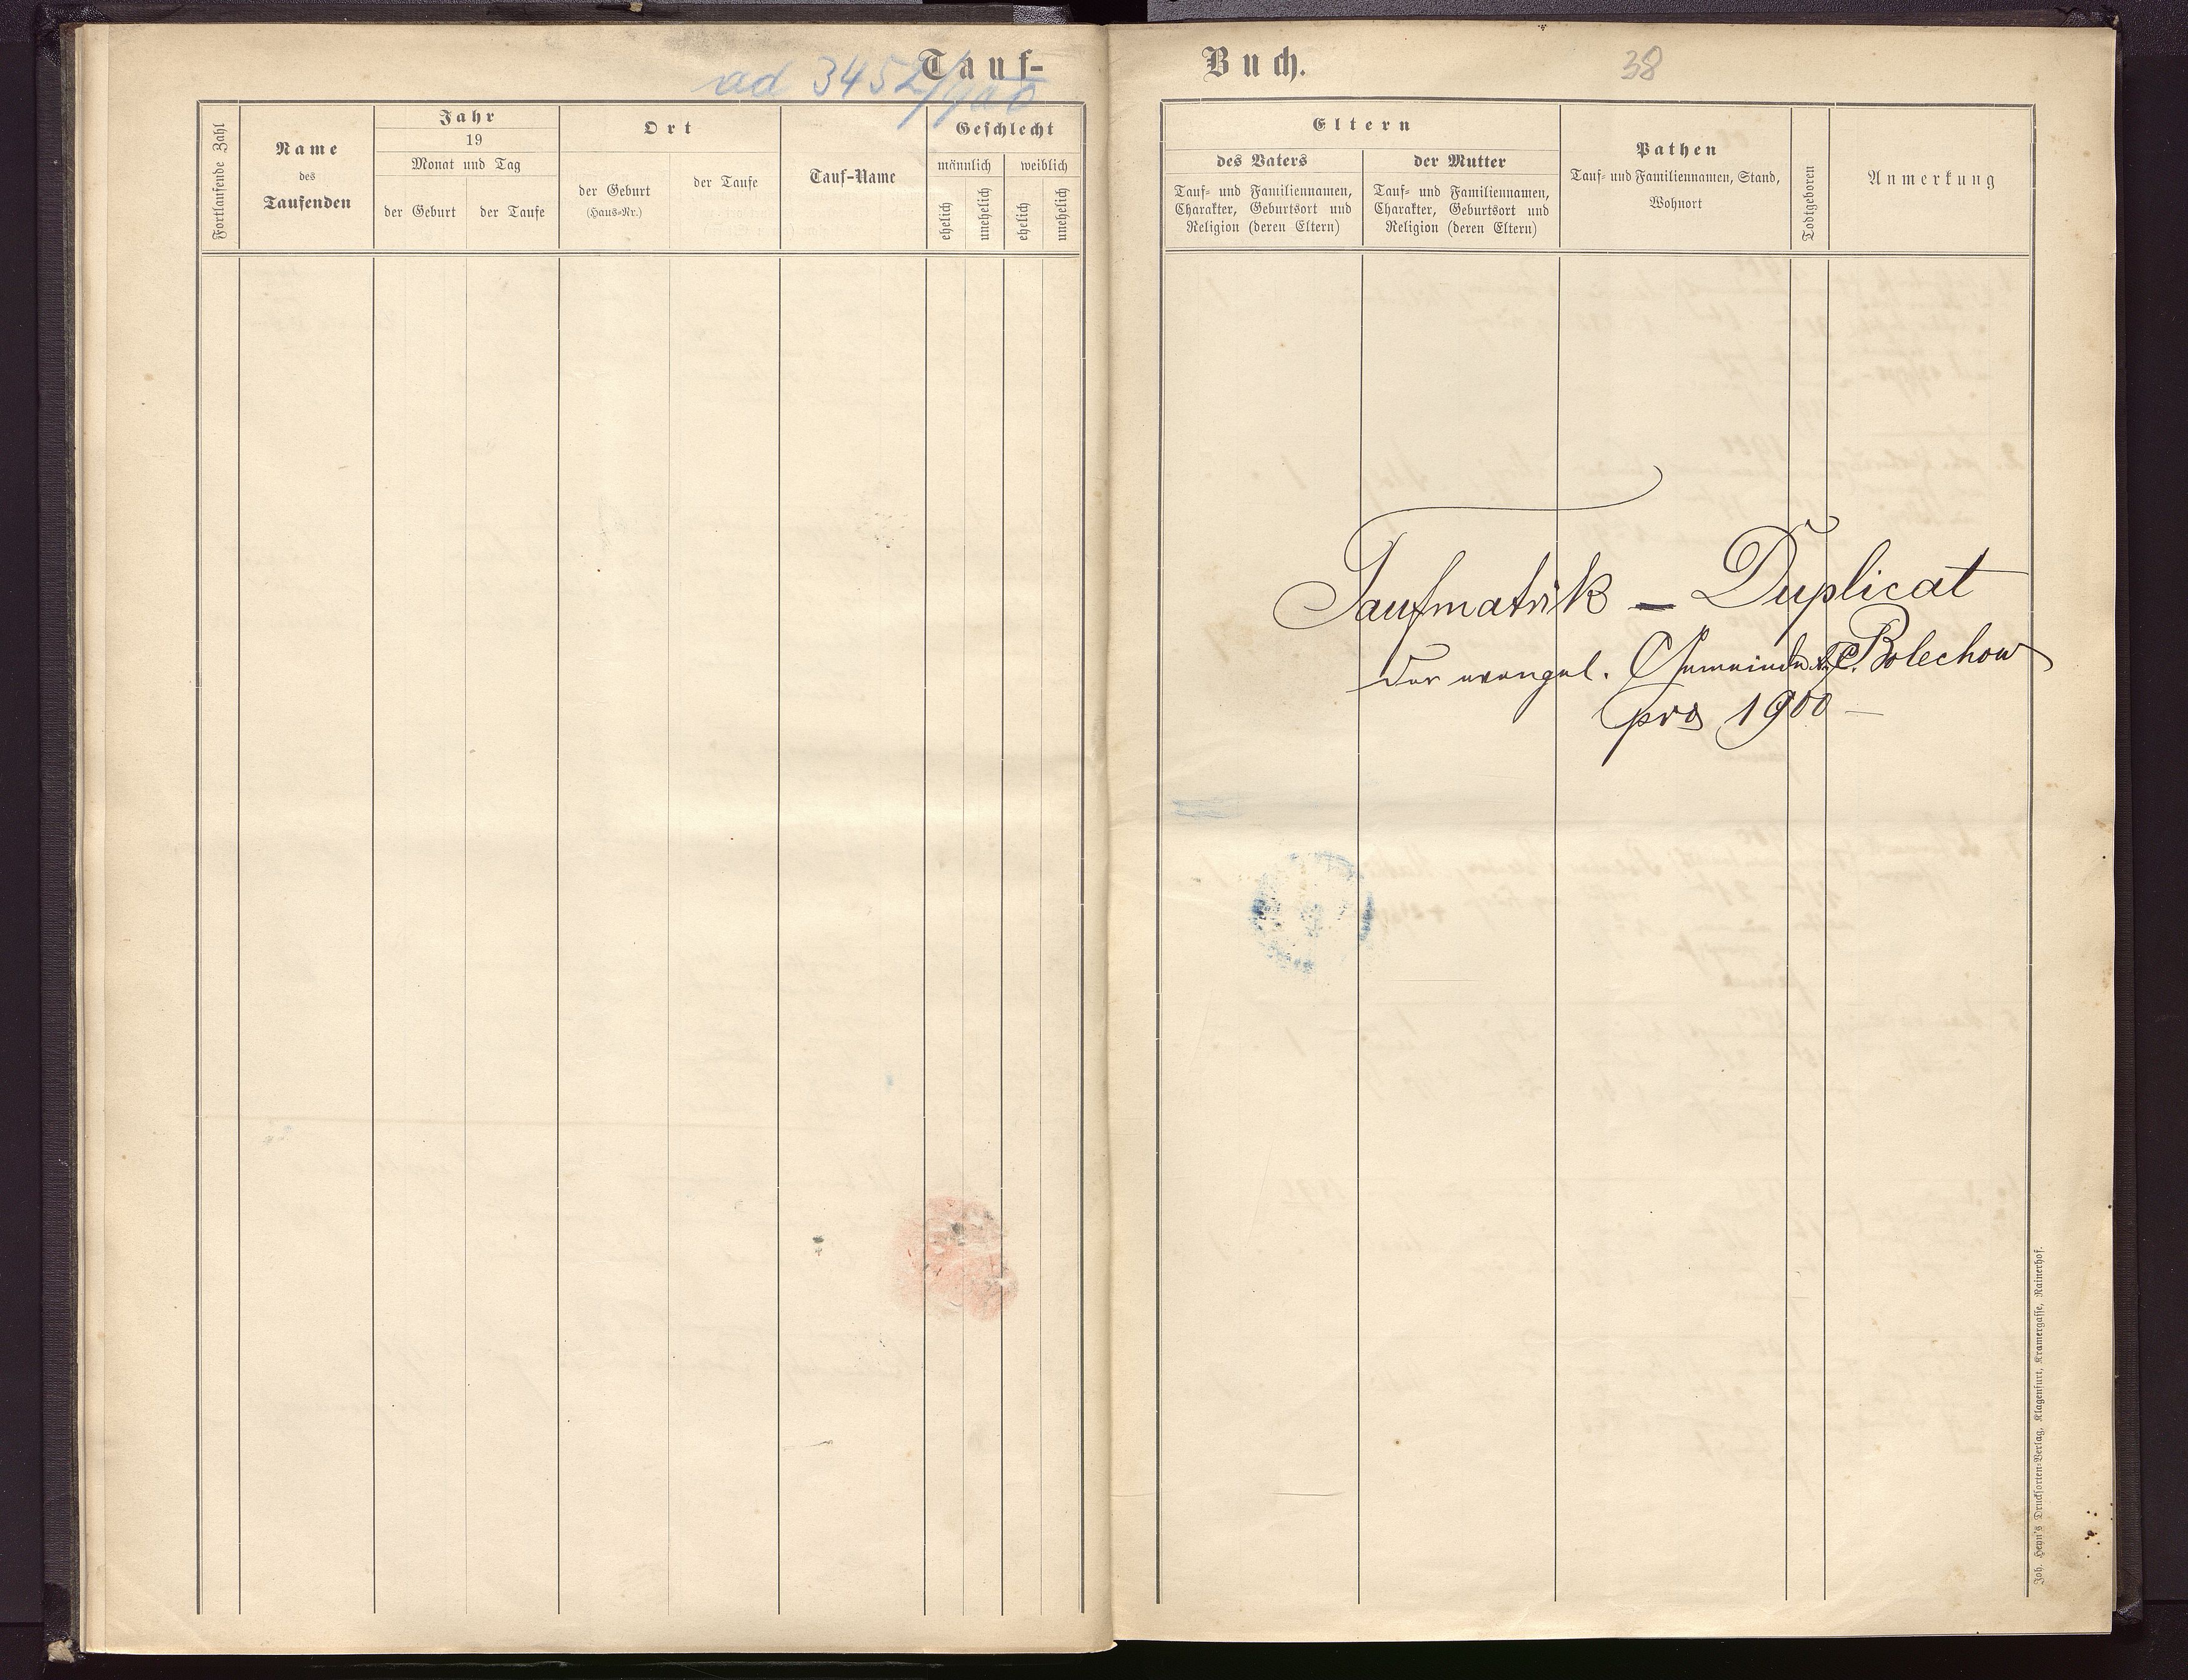 Tauf-
ad 3452/900
Fortlaufende Zahl
Name
des
Taufenden
Jahr
19
Monat und Tag
der Geburt
der Taufe
Ort
der Geburt
(Haus-Nr.)
der Taufe
Tauf-Name
Geschlecht
männlich
weiblich
ehelich
unehelich
ehelich
unehelich
Buch.
38
Eltern
des Vaters
Tauf- und Familiennamen,
Charakter, Geburtsort und
Religion (deren Eltern)
der Mutter
Tauf- und Familiennamen,
Charakter, Geburtsort und
Religion (deren Eltern)
Pathen
Tauf- und Familiennamen, Stand,
Wohnort
Todtgeboren
Anmerkung
Taufmatrik – Duplicat
der evangel. Gemeinde Bolechow
pro 1900 –
Joh. Heyn's Drucksorten-Verlag, Klagenfurt, Kramergasse, Rainerhof.